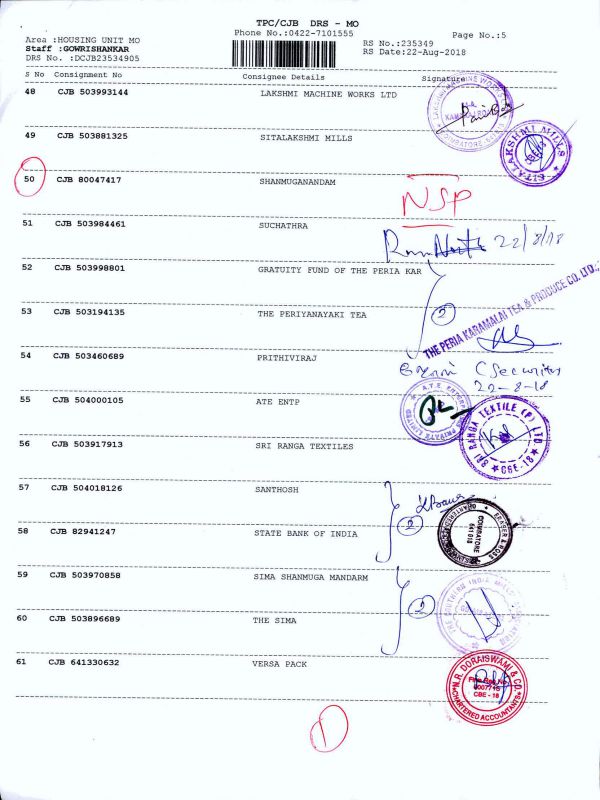 TPC/CJB DRS - MO
Phone No.:0422-7101555
Page No.:5
Area :HOUSING UNIT MO
Staff :GOWRISHANKAR
DRS No. :DCJB23534905
RS No.:235349
RS Date:22-Aug-2018
S No Consignment No Consignee Details Signature
48 CJB 503993144 LAKSHMI MACHINE WORKS LTD
49 CJB 503881325 SITALAKSHMI MILLS
SITALAKSHMI MILLS
50 CJB 80047417 SHANMUGANANDAM
NSP
51 CJB 503984461 SUCHATHRA
22/8/18
52 CJB 503998801 GRATUITY FUND OF THE PERIA KAR
2
THE PERIA KARAMALAI TEA & PRODUCE CO. LTD.,
53 CJB 503194135 THE PERIYANAYAKI TEA
54 CJB 503460689 PRITHIVIRAJ
C Security
22-8-18
55 CJB 504000105 ATE ENTP
SRI RANGA TEXTILE (P) LTD.
CBE-18
56 CJB 503917913 SRI RANGA TEXTILES
57 CJB 504018126 SANTHOSH
2
COIMBATORE
641 018
58 CJB 82941247 STATE BANK OF INDIA
59 CJB 503970858 SIMA SHANMUGA MANDARM
2
60 CJB 503896689 THE SIMA
61 CJB 641330632 VERSA PACK
N.R. DORAISWAMI & CO.
Firm Reg. No.
000771S
CBE - 18
CHARTERED ACCOUNTANTS
1